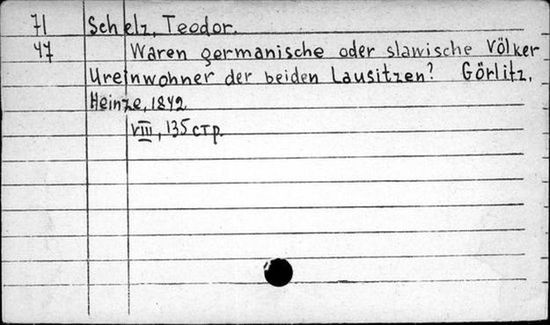 71 Schelz, Teodor.
47 Waren germanische oder slawische Völker
Ureinwohner der beiden Lausitzen? Görlitz,
Heinze, 1842.
VIII, 135 стр.